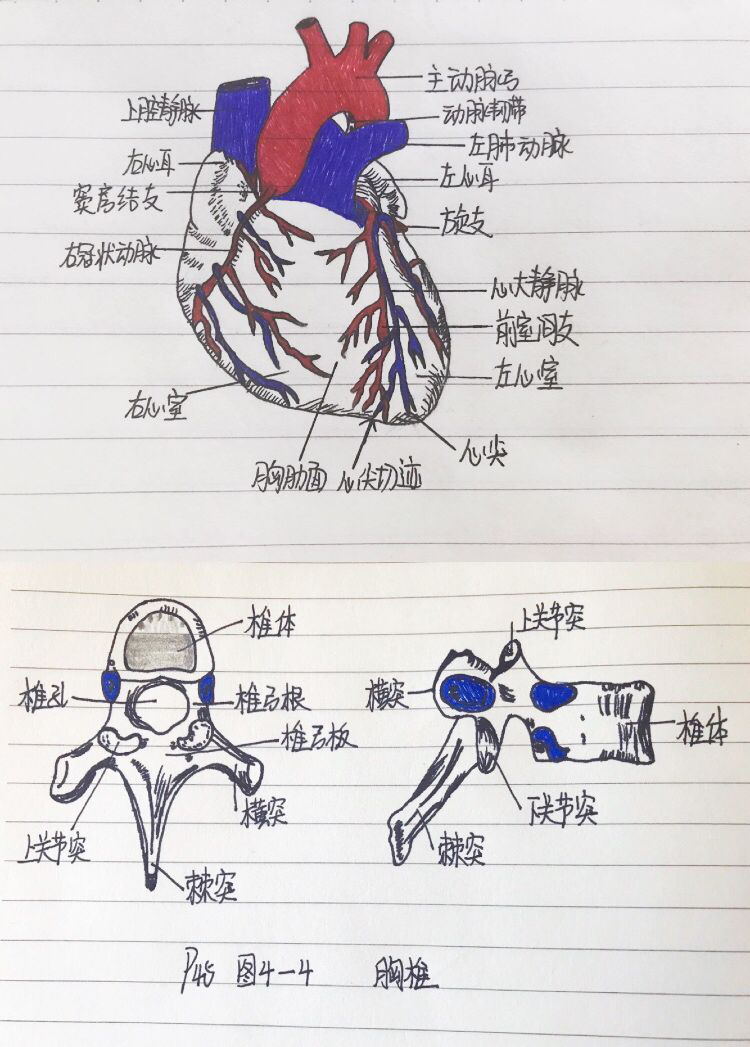 主动脉弓
动脉韧带
左肺动脉
左心耳
右旋支
心大静脉
前室间支
左心室
心尖
心尖切迹
胸肋面
右心室
右冠状动脉
窦房结支
右心耳
上腔静脉
椎体
椎孔
椎弓根
椎弓板
横突
上关节突
棘突
上关节突
横突
椎体
下关节突
棘突
P45 图4-4 胸椎